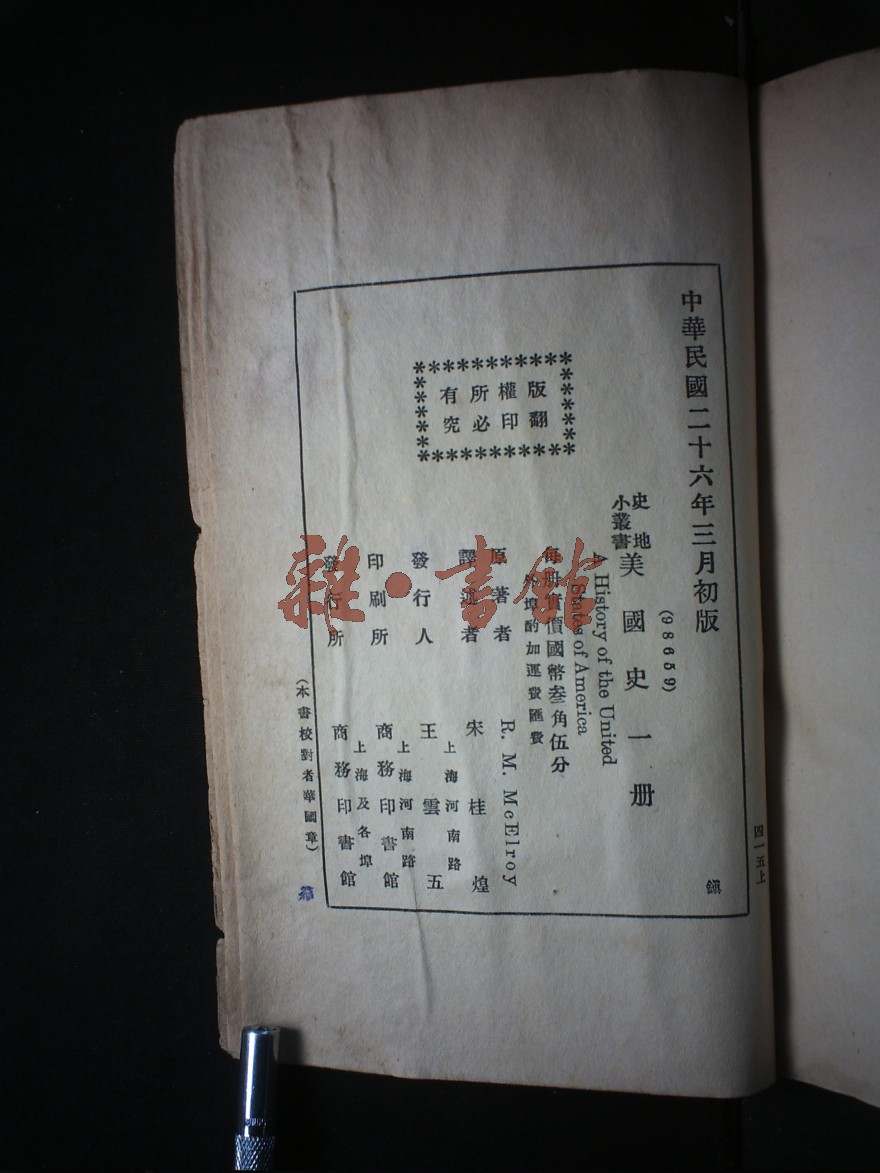 中華民國二十六年三月初版
(98659)
史地小叢書 美國史一册
A History of the United
States of America
每册實價國幣叁角伍分
外埠酌加運費匯費
原著者 R. M. McElroy
譯述者 宋桂煌
發行人 王雲五
上海河南路
印刷所 商務印書館
上海河南路
發行所 商務印書館
上海及各埠
版權所有
翻印必究
(本書校對者華國章)
四一五上
雜·書館